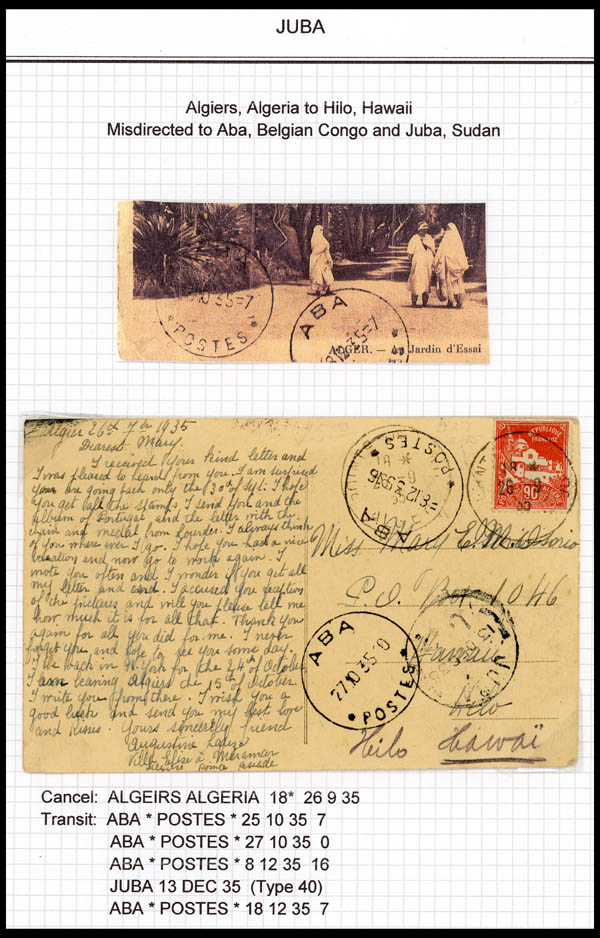 JUBA
Algiers, Algeria to Hilo, Hawaii
Misdirected to Aba, Belgian Congo and Juba, Sudan
10 35=7
* POSTES *
ABA
12 35=7
ALGER. — Au Jardin d'Essai
Alger 26th 1935
Dearest Mary.
I received your kind letter and
I was pleased to heard from you. I am surprised
you are going back only the 30th of Sept. I hope
you get all the stamps I send you and the
album of Portugal and the letter with the
chain and medal from Lourdes. I always think
of you where ever I go. I hope you had a nice
vacation and now go to work again. I
wrote you often and I wonder if you get all
my letter and card. I accused you reception
of the pictures and will you please tell me
how much it is for all that. Thank you
again for all you did for me. I never
forget you and hope to see you some day.
I be back in N. York for the 24th of October
I am leaving Algiers the 15th of October.
I write you from there. I wish you a
good luck and send you my best love
and kisses. Yours sincerely friend
Augustine
Villa Elise à Miramar
Pointe Pescade
POSTES
8 12 35 16
ABA
REPUBLIQUE FRANÇAISE
90
18 *
26 9
35
Miss Mary E.
P.O. Box 1046
Hawaii
Hilo
Hilo Hawaï
ABA
27 10 35=0
* POSTES *
JUBA
Cancel: ALGEIRS ALGERIA 18* 26 9 35
Transit: ABA * POSTES * 25 10 35 7
ABA * POSTES * 27 10 35 0
ABA * POSTES * 8 12 35 16
JUBA 13 DEC 35 (Type 40)
ABA * POSTES * 18 12 35 7